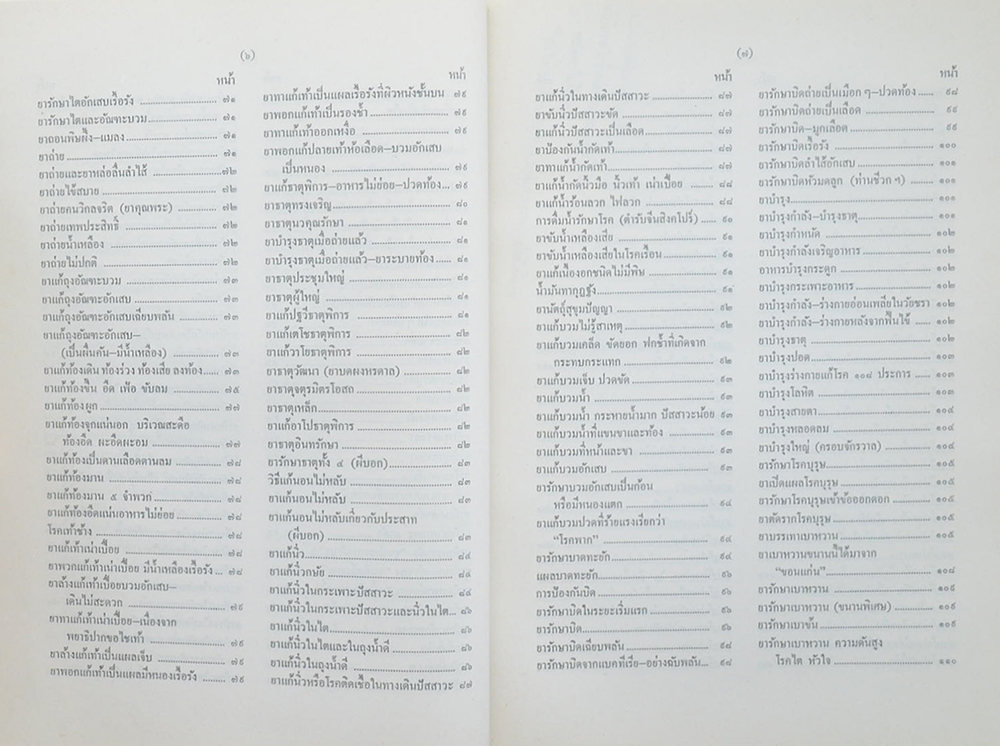 (๖)
หน้า
ยารักษาไตอักเสบเรื้อรัง ๗๑
ยารักษาไตและอัณฑะบวม ๗๑
ยาถอนพิษผึ้ง–แมลง ๗๑
ยาถ่าย ๗๑
ยาถ่ายและยาหล่อลื่นลำไส้ ๗๒
ยาถ่ายไข้สบาย ๗๒
ยาถ่ายคนวิกลจริต (ยาคุณพระ) ๗๒
ยาถ่ายเทพประสิทธิ์ ๗๒
ยาถ่ายน้ำเหลือง ๗๒
ยาถ่ายไม่ปกติ ๗๒
ยาแก้ถุงอัณฑะบวม ๗๓
ยาแก้ถุงอัณฑะอักเสบ ๗๓
ยาแก้ถุงอัณฑะอักเสบเฉียบพลัน ๗๓
ยาแก้ถุงอัณฑะอักเสบ–
(เป็นผื่นคัน–มีน้ำเหลือง) ๗๓
ยาแก้ท้องเดิน ท้องร่วง ท้องเสีย ลงท้อง ๗๓
ยาแก้ท้องขึ้น อืด เฟ้อ ขับลม ๗๕
ยาแก้ท้องผูก ๗๗
ยาแก้ท้องจุกแน่นอก บริเวณสะดือ
ท้องอืด ผะอืดผะอม ๗๗
ยาแก้ท้องเป็นดานเลือดดานลม ๗๘
ยาแก้ท้องมาน ๗๘
ยาแก้ท้องมาน ๕ จำพวก ๗๘
ยาแก้ท้องอืดแน่นอาหารไม่ย่อย ๗๘
โรคเท้าช้าง ๗๘
ยาแก้เท้าเน่าเปื่อย ๗๘
ยาพวกแก้เท้าเน่าเปื่อย มีน้ำเหลืองเรื้อรัง ๗๘
ยาล้างแก้เท้าเปื่อยบวมอักเสบ–
เดินไม่สะดวก ๗๙
ยาทาแก้เท้าเน่าเปื่อย–เนื่องจาก
พยาธิปากขอไชเท้า ๗๙
ยาล้างแก้เท้าเป็นแผลเจ็บ ๗๙
ยาพอกแก้เท้าเป็นแผลมีหนองเรื้อรัง ๗๙
หน้า
ยาทาแก้เท้าเป็นแผลเรื้อรังที่ผิวหนังชั้นบน ๗๙
ยาพอกแก้เท้าเป็นรองช้ำ ๗๙
ยาทาแก้เท้าออกเหงื่อ ๗๙
ยาพอกแก้ปลายเท้าห้อเลือด–บวมอักเสบ
เป็นหนอง ๗๙
ยาแก้ธาตุพิการ–อาหารไม่ย่อย–ปวดท้อง ๗๙
ยาธาตุทรงเจริญ ๘๐
ยาธาตุนวคุณรักษา ๘๑
ยาบำรุงธาตุเมื่อถ่ายแล้ว ๘๑
ยาบำรุงธาตุเมื่อถ่ายแล้ว–ยาระบายท้อง ๘๑
ยาธาตุประชุมใหญ่ ๘๑
ยาธาตุผู้ใหญ่ ๘๑
ยาแก้ปฐวีธาตุพิการ ๘๑
ยาแก้เตโชธาตุพิการ ๘๒
ยาแก้วาโยธาตุพิการ ๘๒
ยาธาตุวัฒนา (ยาบดผงหรดาล) ๘๒
ยาธาตุจตุรมิตรโอสถ ๘๒
ยาธาตุเหล็ก ๘๒
ยาแก้อาโปธาตุพิการ ๘๒
ยาธาตุอินทรักษา ๘๒
ยารักษาธาตุทั้ง ๔ (ผีบอก) ๘๓
วิธีแก้นอนไม่หลับ ๘๓
ยาแก้นอนไม่หลับ ๘๓
ยาแก้นอนไม่หลับเกี่ยวกับประสาท
(ผีบอก) ๘๓
ยาแก้นิ่ว ๘๔
ยาแก้นิ่วกษัย ๘๔
ยาแก้นิ่วในกระเพาะปัสสาวะ ๘๔
ยาแก้นิ่วในกระเพาะปัสสาวะและนิ่วในไต ๘๖
ยาแก้นิ่วในไต ๘๖
ยาแก้นิ่วในไตและในถุงน้ำดี ๘๖
ยาแก้นิ่วในถุงน้ำดี ๘๖
ยาแก้นิ่วหรือโรคติดเชื้อในทางเดินปัสสาวะ ๘๗
(๗)
หน้า
ยาแก้นิ่วในทางเดินปัสสาวะ ๘๗
ยาขับนิ่วปัสสาวะขัด ๘๗
ยาแก้นิ่วปัสสาวะเป็นเลือด ๘๗
ยาป้องกันน้ำกัดเท้า ๘๗
ยาทาแก้น้ำกัดเท้า ๘๗
ยาแก้น้ำกัดนิ้วมือ นิ้วเท้า เน่าเปื่อย ๘๘
ยาแก้น้ำร้อนลวก ไฟลวก ๘๘
การดื่มน้ำรักษาโรค (ตำรับจีนสิงคโปร์) ๙๑
ยาขับน้ำเหลืองเสีย ๙๑
ยาขับน้ำเหลืองเสียในโรคเรื้อน ๙๑
ยาแก้เนื้องอกชนิดไม่มีพิษ ๙๑
น้ำมันทากุฏฐัง ๙๑
ยานัตถุ์สุขุมปัญญา ๙๒
ยาแก้บวมไม่รู้สาเหตุ ๙๒
ยาแก้บวมเคล็ด ขัดยอก ฟกช้ำที่เกิดจาก
กระทบกระแทก ๙๒
ยาแก้บวมเจ็บ ปวดขัด ๙๓
ยาแก้บวมน้ำ ๙๓
ยาแก้บวมน้ำ กระหายน้ำมาก ปัสสาวะน้อย ๙๓
ยาแก้บวมน้ำที่แขนขาและท้อง ๙๓
ยาแก้บวมที่หน้าและขา ๙๓
ยาแก้บวมอักเสบ ๙๓
ยารักษาบวมอักเสบเป็นก้อน
หรือมีหนองแตก ๙๔
ยาแก้บวมปวดที่ร้ายแรงเรียกว่า
“โรคพาก” ๙๔
ยารักษาบาดทะยัก ๙๔
แผลบาดทะยัก ๙๖
การป้องกันบิด ๙๖
ยารักษาบิดในระยะเริ่มแรก ๙๖
ยารักษาบิด ๙๖
ยารักษาบิดเฉียบพลัน ๙๘
ยารักษาบิดจากแบคทีเรีย–อย่างฉับพลัน ๙๘
หน้า
ยารักษาบิดถ่ายเป็นเมือก ๆ–ปวดท้อง ๙๘
ยารักษาบิดถ่ายเป็นเลือด ๙๙
ยารักษาบิด–มูกเลือด ๙๙
ยารักษาบิดเรื้อรัง ๑๐๐
ยารักษาบิดลำไส้อักเสบ ๑๐๐
ยารักษาบิดหัวมดลูก (ท่านชีวก ฯ) ๑๐๑
ยาบำรุง ๑๐๑
ยาบำรุงกำลัง–บำรุงธาตุ ๑๐๑
ยาบำรุงกำหนัด ๑๐๒
ยาบำรุงกำลังเจริญอาหาร ๑๐๒
อาหารบำรุงกระดูก ๑๐๒
ยาบำรุงกระเพาะอาหาร ๑๐๒
ยาบำรุงกำลัง–ร่างกายอ่อนเพลียในวัยชรา ๑๐๒
ยาบำรุงกำลัง–ร่างกายหลังจากฟื้นไข้ ๑๐๒
ยาบำรุงธาตุ ๑๐๒
ยาบำรุงปอด ๑๐๓
ยาบำรุงร่างกายแก้โรค ๑๐๘ ประการ ๑๐๓
ยาบำรุงโลหิต ๑๐๓
ยาบำรุงสายตา ๑๐๔
ยาบำรุงหลอดลม ๑๐๔
ยาบำรุงใหญ่ (ครอบจักรวาล) ๑๐๔
ยารักษาโรคบุรุษ ๑๐๕
ยาเปิดแผลโรคบุรุษ ๑๐๕
ยารักษาโรคบุรุษเข้าข้อออกดอก ๑๐๕
ยาตัดรากโรคบุรุษ ๑๐๕
ยาบรรเทาเบาหวาน ๑๐๕
ยาเบาหวานขนานนี้ได้มาจาก
“ขอนแก่น” ๑๐๘
ยารักษาเบาหวาน ๑๐๙
ยารักษาเบาหวาน (ขนานพิเศษ) ๑๐๙
ยารักษาเบาข้น ๑๐๙
ยารักษาเบาหวาน ความดันสูง
โรคไต หัวใจ ๑๑๐